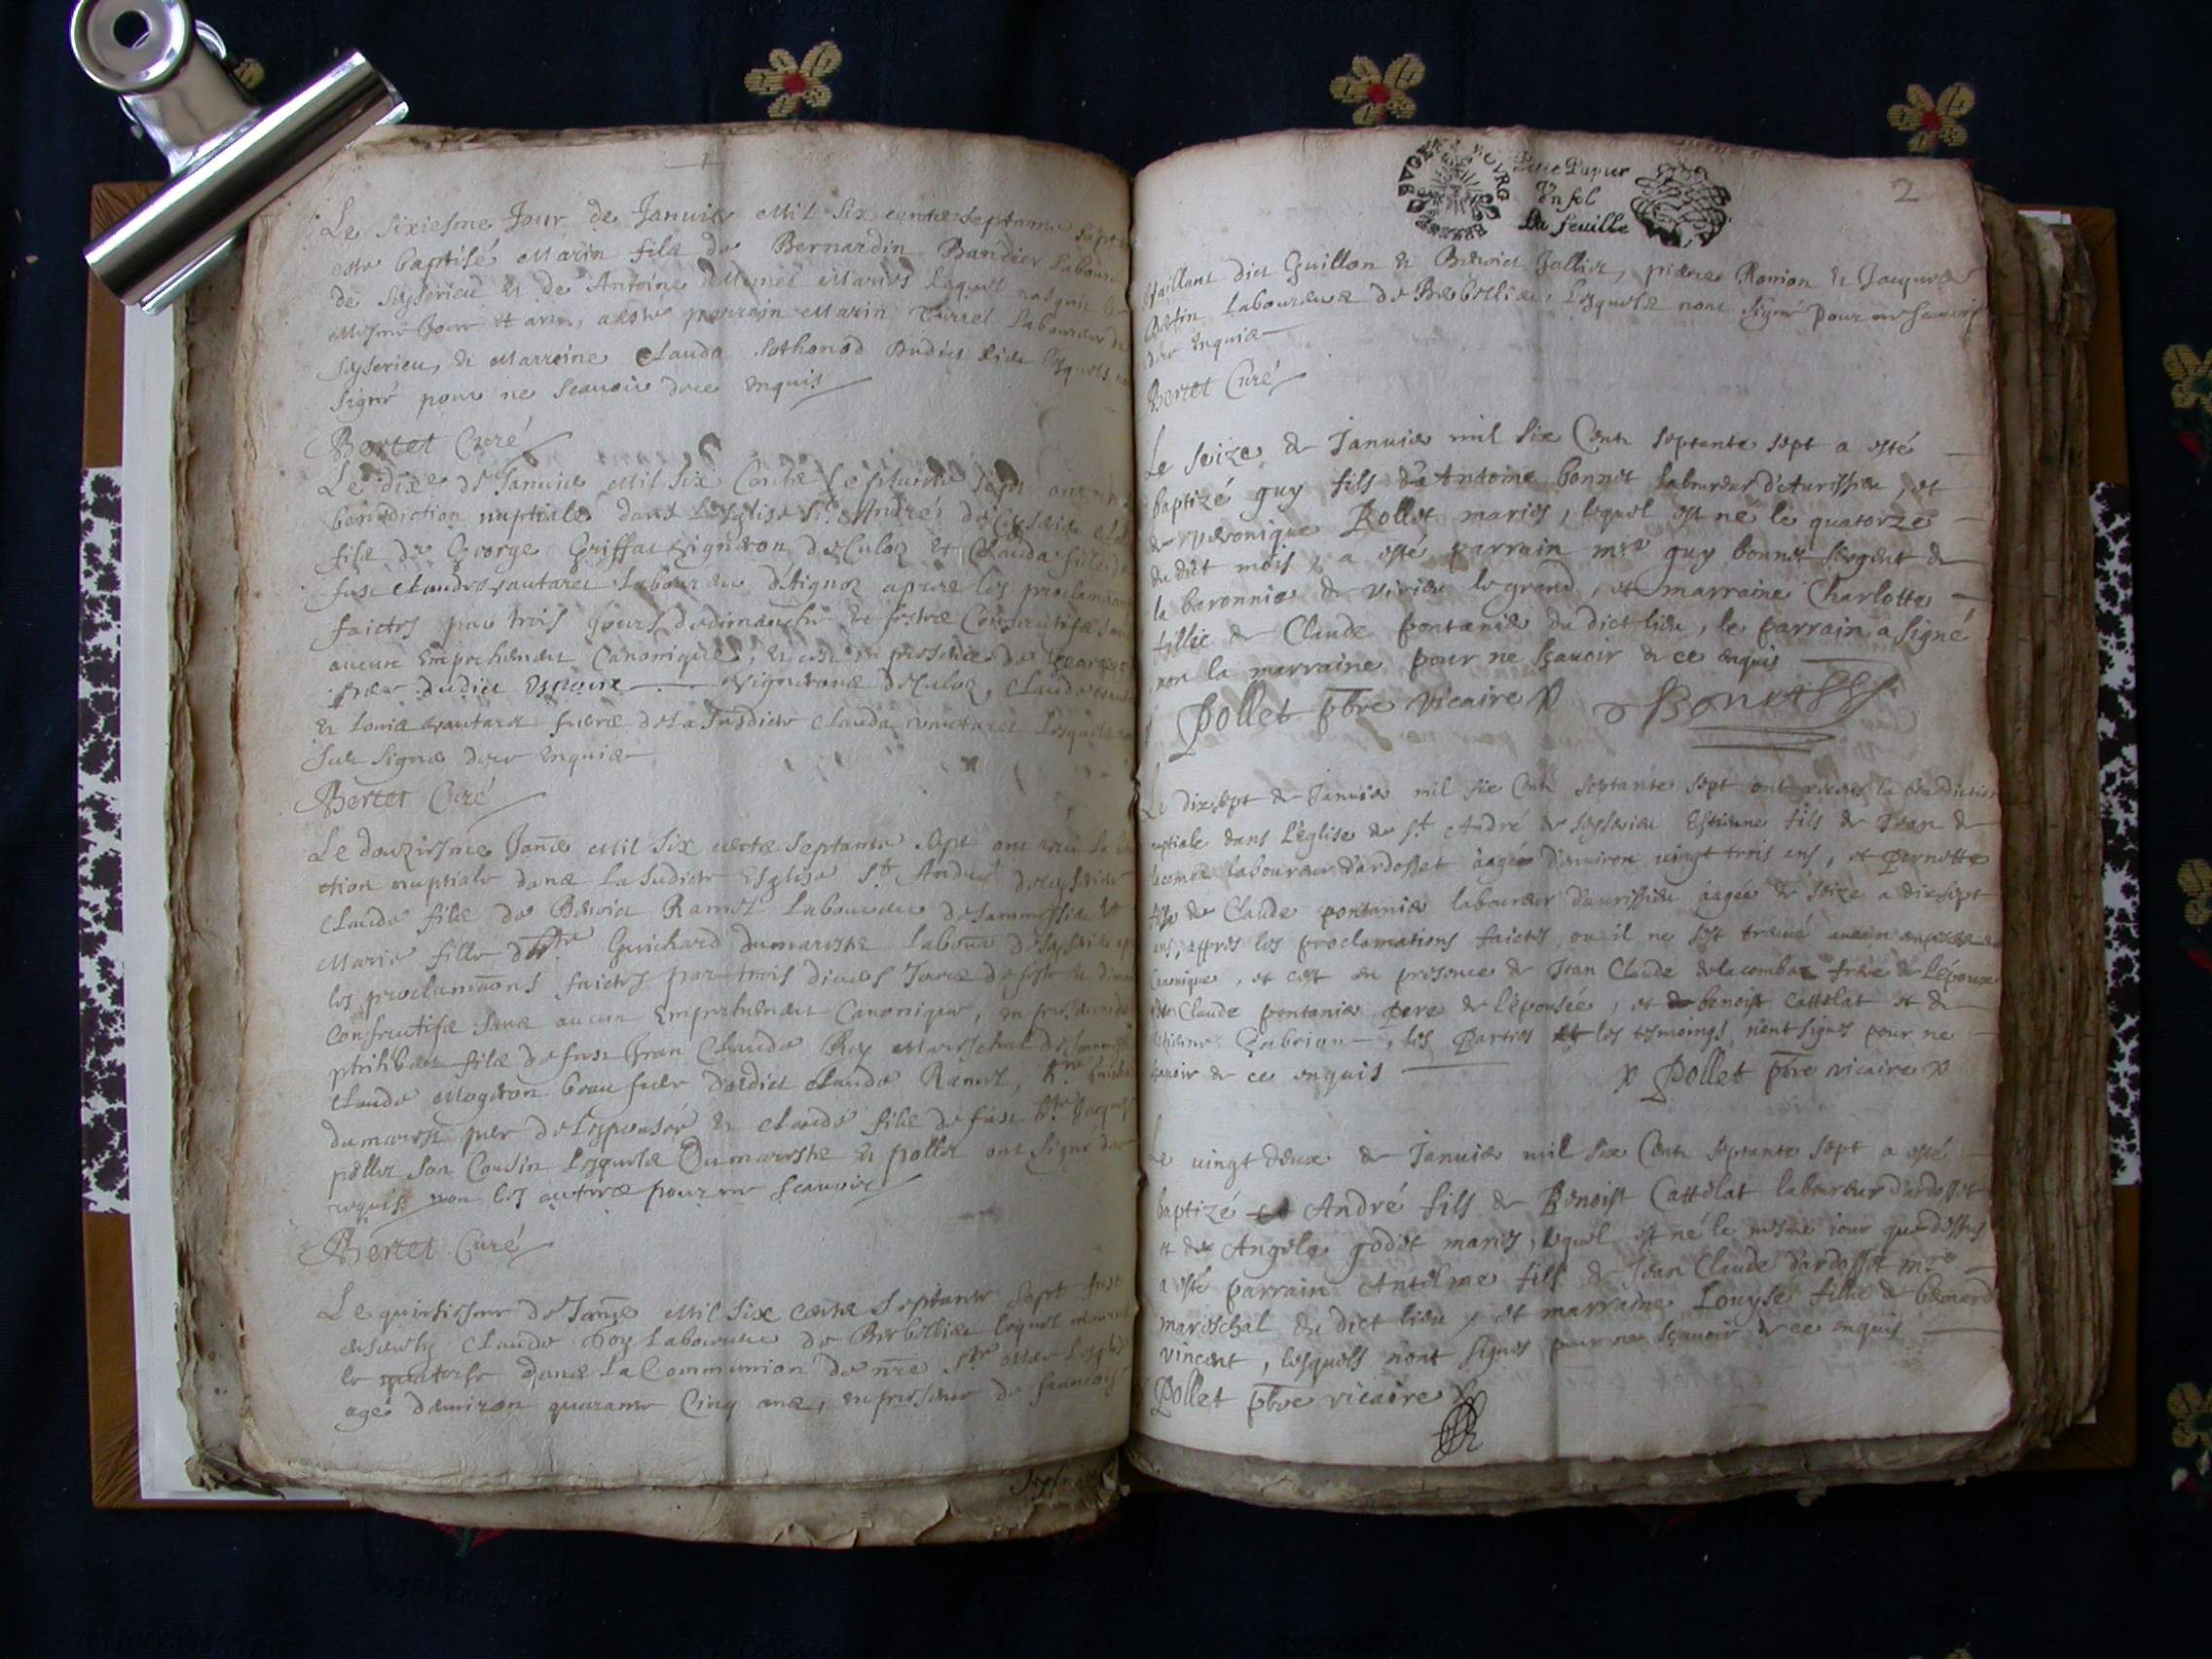 Le sixiesme Jour de Janvier Mil six cents septante sept
este baptisé Marin fils de Bernardin Bandier Laboureur
de Seyserieu et de Antoine mariés Lequel nasquit le
mesme Jour et an, a este parrain Marin Laboureur de
Seyserieu, et Marreine Clauda Sothonod dudict lieu Lesquels
signé pour ne scavoir de ce enquis
Bertet Curé
Le dix de Janvier Mil six Cents septante sept ont
benediction nuptiale dans L'esglise St André de Ceyserieu
fils de George Griffat vigneron de Culoz et Clauda fille de
fust Claude vautaret Laboureur d'Aignoz apres les proclamaons
faictes par trois Jours de dimanche et festes Consecutifs sans
aucun Empeschement Canonique, et ce en presence de George
frere dudict Espoux vignerons de Culoz, Claude
et Louis vautaret freres de La susdicte Clauda vautaret Lesquels
signés de ce enquis
Bertet Curé
Le douziesme Janer Mil six cents septante sept ont receu la
ction nuptiale dans La susdicte Esglise St André de ceyserieu
Claude fils de Benoict Ramel Laboureur de sammessieu et
Marie fille d'hste Guichard dumarest Labour de
les proclamaons faictes par trois divers Jours de feste et dimanche
Consecutifs sans aucun Empeschement Canonique, en presence de
philibert fils de fust Jean Claude Rey Mareschal de
Claude beau frere dudict Claude Ramel, hste Guichard
dumarest pere de Lespousée et Claude fils de fust hste Jacques
pollet son Cousin Lesquels Dumareste et pollet ont signé de ce
requis non les autres pour ne scavoir
Bertet Curé
Le quinsiesme de Janer Mil six cents septante sept fust
ensevely Claude Laboureur de Berbellieu lequel mourut
le quatorse dans La Communion de nre Ste Mere Lesglise
agé d'environ quarante Cinq ans, en presence de francois
2
BVGEY BOVRG BRESSE
Petit Papier
Vn sol
La feuille
Vaillant dict Guillon et Benoict Jallier, pierre Romon et Jacques
Bertin Laboureurs de Berbellieu, Lesquels nont signé pour ne scavoir
de ce Enquis
Bertet Curé
Le seize de Janvier mil six Cent septante sept a esté
baptizé guy fils d'Antoine bonnet laboureur d'Avrissieu, et
de véronique Pollet mariés, lequel est né le quatorze
du dict mois, a esté parrain mre guy bonnet sergent de
la baronnie de virieu le grand, et marraine Charlotte
fillie de Claude pontanier du dict lieu, le parrain a signé
non la marraine pour ne sçavoir de ce enquis
Pollet pbre vicaire Bonnet
Le dixsept de Janvier mil six Cent septante sept ont receu la benediction
nuptiale dans l'église de St André de seyserieu Estienne fils de Jean de
lacombe laboureur d'ardosset àagée d'environ vingt trois ans, et Pernette
fille de Claude pontanier laboureur d'avrissieu àagée de seize a dixsept
ans, appres les proclamations faictes, ou il ne s'est treuvé aucun
Canonique, et cest en presence de Jean Claude delacombe frère de l'époux
de Claude pontanier pere de l'épousée, et de benoist Cattelat et de
estienne, les Parties et les tesmoings n'ont signés pour ne
sçavoir de ce enquis Pollet pbre vicaire
Le vingt deux de Janvier mil six Cent septante sept a esté
baptizé André fils de Benoist Cattelat laboureur d'ardosset
et de Angele godet mariés, lequel est né le mesme iour que dessus
a esté parrain Antelme fils de Jean Claude d'ardosset mre
mareschal du dict lieu, et marraine Louyse fille de benoard
vincent, lesquels n'ont signés pour ne sçavoir de ce enquis
Pollet pbre vicaire